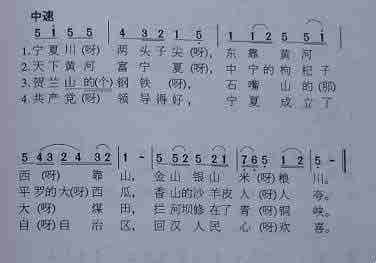 中速
5 1 5 5 | 4 3 2 1 5 | 1 1 2 5 5 1 |
1.宁夏川(呀) 两头子尖(呀), 东靠黄河
2.天下黄河 富宁夏(呀), 中宁的枸杞子
3.贺兰山的(个)钢铁(呀), 石嘴山的(那)
4.共产党(呀) 领导得好, 宁夏成立了
5 4 3 2 4 3 2 | 1 - | 5 5 2 5 2 1 | 7 6 5 1 2 | 5 - ‖
西(呀)靠山, 金山银山米(呀)粮川。
平罗的大(呀)西瓜, 香山的沙羊皮人(呀)人夸。
大(呀)煤田, 拦河坝修在了青(呀)铜峡。
自(呀)自治区, 回汉人民心(呀)欢喜。